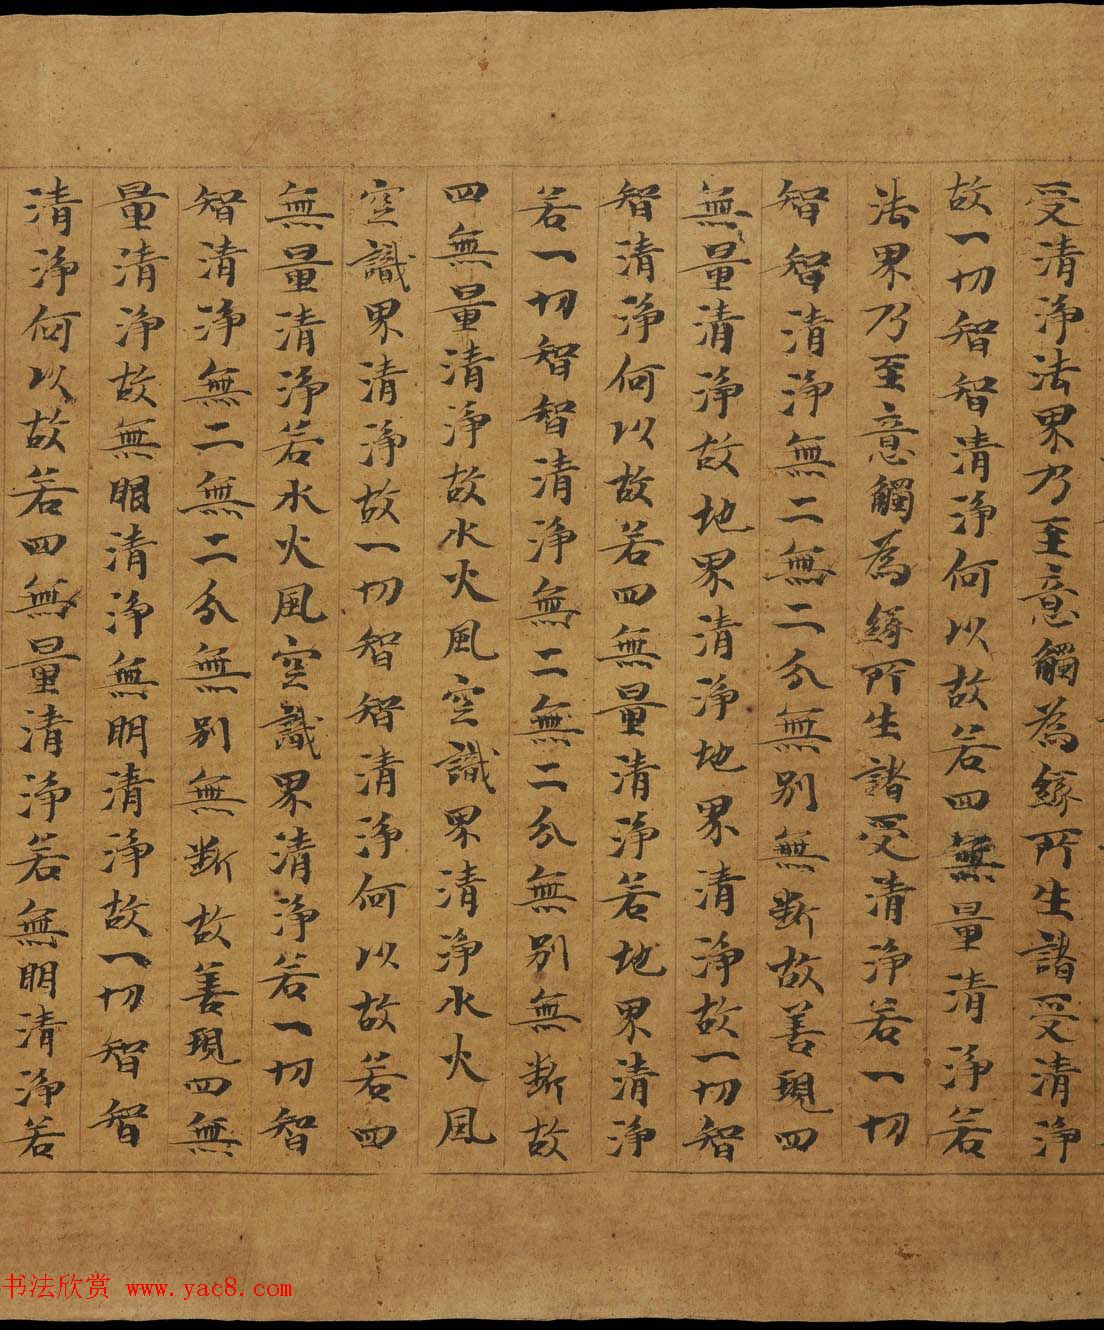 受清淨法界乃至意觸為緣所生諸受清淨
故一切智智清淨何以故若四無量清淨若
法界乃至意觸為緣所生諸受清淨若一切
智智清淨無二無二分無別無断故善現四
無量清淨故地界清淨地界清淨故一切智
智清淨何以故若四無量清淨若地界清淨
若一切智智清淨無二無二分無別無断故
四無量清淨故水火風空識界清淨水火風
空識界清淨故一切智智清淨何以故若四
無量清淨若水火風空識界清淨若一切智
智清淨無二無二分無別無断故善現四無
量清淨故無眼清淨無明清淨故一切智智
清淨何以故若四無量清淨若無明清淨若
书法欣赏 www.yac8.com